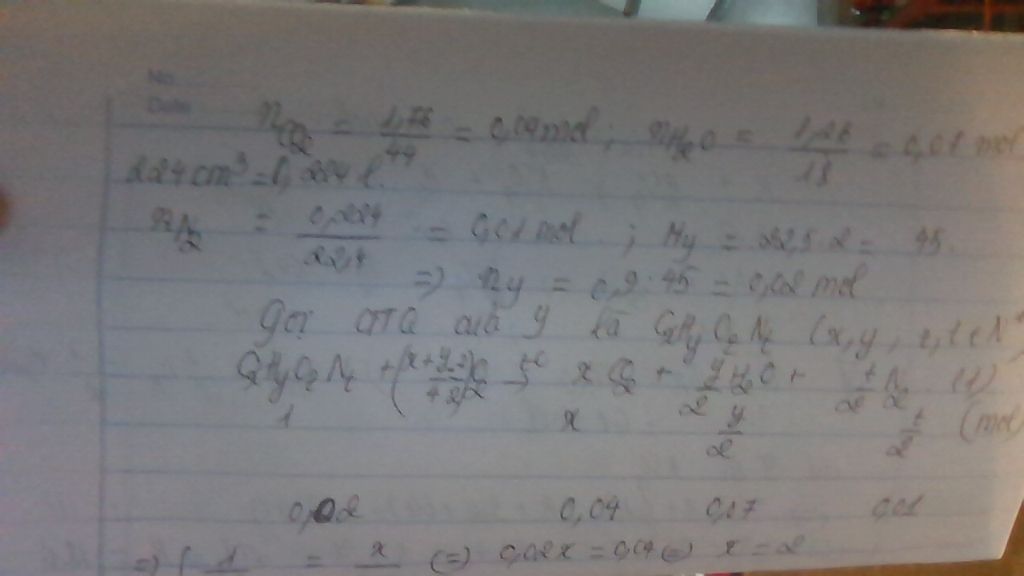 No.
Date
nCO2 = 1,76/44 = 0,04 mol ; nH2O = 1,26/18 = 0,07 mol
224 cm³ = 0,224 l.
nN2 = 0,224/22,4 = 0,01 mol ; My = 22,5.2 = 45.
=> ny = 0,9:45 = 0,02 mol
Gọi CTTQ của Y là CxHyOzNt (x, y, z, t ∈ N*)
CxHyOzNt + O2 → x CO2 + y/2 H2O + t/2 N2 (1)
1 x y/2 t/2 (mol)
0,02 0,04 0,07 0,01
=> 1 = x (=) 0,02x = 0,04 (=) x = 2